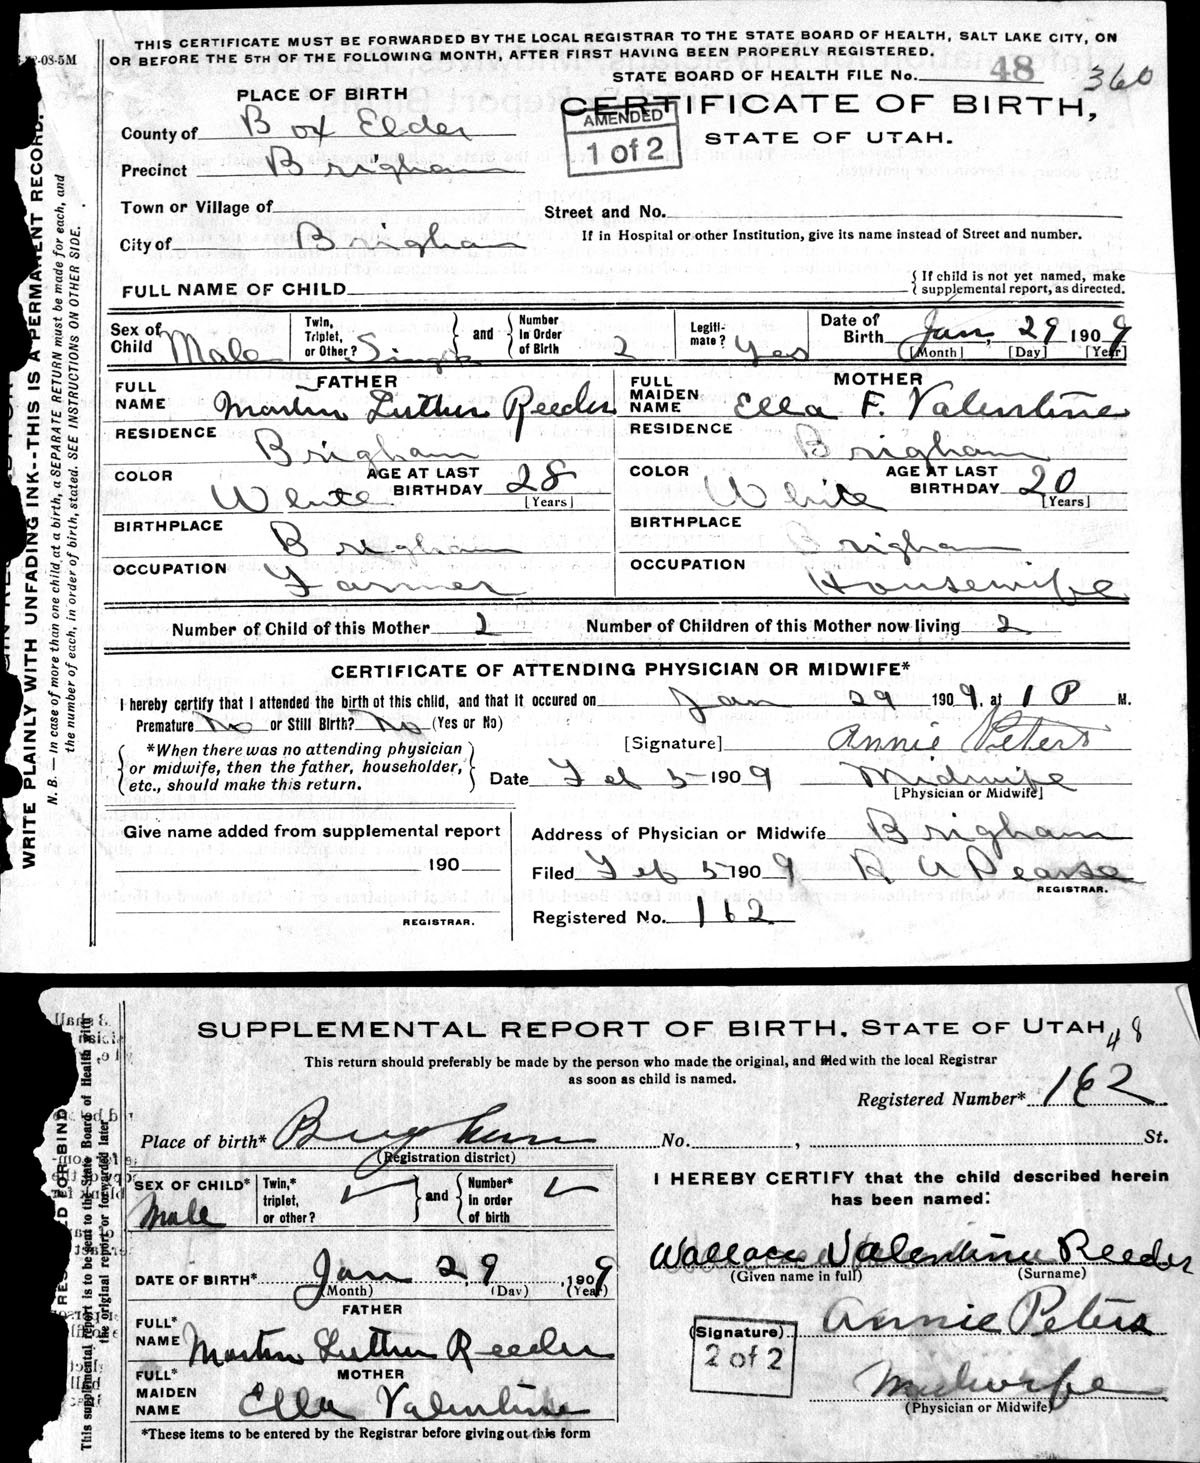 THIS CERTIFICATE MUST BE FORWARDED BY THE LOCAL REGISTRAR TO THE STATE BOARD OF HEALTH, SALT LAKE CITY, ON
OR BEFORE THE 5TH OF THE FOLLOWING MONTH, AFTER FIRST HAVING BEEN PROPERLY REGISTERED.
-08-5M
STATE BOARD OF HEALTH FILE No. 48 360
PLACE OF BIRTH
CERTIFICATE OF BIRTH,
STATE OF UTAH.
AMENDED
1 of 2
County of Box Elder
Precinct Brigham
Town or Village of
Street and No.
City of Brigham
If in Hospital or other Institution, give its name instead of Street and number.
FULL NAME OF CHILD
{ If child is not yet named, make
supplemental report, as directed.
Sex of Child Male
Twin, Triplet, or Other? Single } and { Number in Order of Birth 2
Legiti-mate? Yes
Date of Birth Jan. 29 1909
[Month] [Day] [Year]
FATHER
FULL NAME Martin Luther Reeder
MOTHER
FULL MAIDEN NAME Ella F. Valentine
RESIDENCE Brigham
RESIDENCE Brigham
COLOR White AGE AT LAST BIRTHDAY 28 [Years]
COLOR White AGE AT LAST BIRTHDAY 20 [Years]
BIRTHPLACE Brigham
BIRTHPLACE Brigham
OCCUPATION Farmer
OCCUPATION Housewife
Number of Child of this Mother 2 Number of Children of this Mother now living 2
CERTIFICATE OF ATTENDING PHYSICIAN OR MIDWIFE*
I hereby certify that I attended the birth of this child, and that it occured on Jan 29 1909, at 1 P M.
Premature No or Still Birth? No (Yes or No)
[Signature] Annie Peters
{ *When there was no attending physician
or midwife, then the father, householder,
etc., should make this return. }
Date Feb 5 1909 Midwife
[Physician or Midwife]
Give name added from supplemental report
190
REGISTRAR.
Address of Physician or Midwife Brigham
Filed Feb 5 1909 R A Pearse
REGISTRAR.
Registered No. 162
WRITE PLAINLY WITH UNFADING INK--THIS IS A PERMANENT RECORD.
N. B. — In case of more than one child at a birth, a SEPARATE RETURN must be made for each, and
the number of each, in order of birth, stated. SEE INSTRUCTIONS ON OTHER SIDE.
SUPPLEMENTAL REPORT OF BIRTH, STATE OF UTAH 48
This return should preferably be made by the person who made the original, and filed with the local Registrar
as soon as child is named.
Registered Number* 162
Place of birth* Brigham No. , St.
(Registration district)
SEX OF CHILD* Male
Twin,* triplet, or other? } and { Number* in order of birth
I HEREBY CERTIFY that the child described herein
has been named:
Wallace Valentine Reeder
(Given name in full) (Surname)
DATE OF BIRTH* Jan 29, 1909
(Month) (Day) (Year)
FATHER
FULL* NAME Martin Luther Reeder
MOTHER
FULL* MAIDEN NAME Ella Valentine
*These items to be entered by the Registrar before giving out this form
(Signature) Annie Peters
2 of 2
Midwife
(Physician or Midwife)
This supplemental report is to be sent to the State Board of Health with
the original report or forwarded later